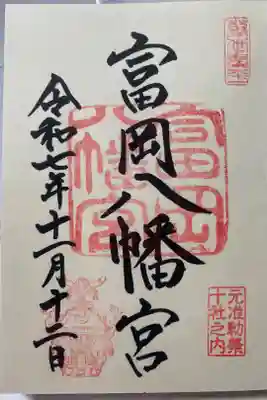 富岡八幡宮
令和七年十一月十二日
富岡八幡宮
元准勅祭
十社之内